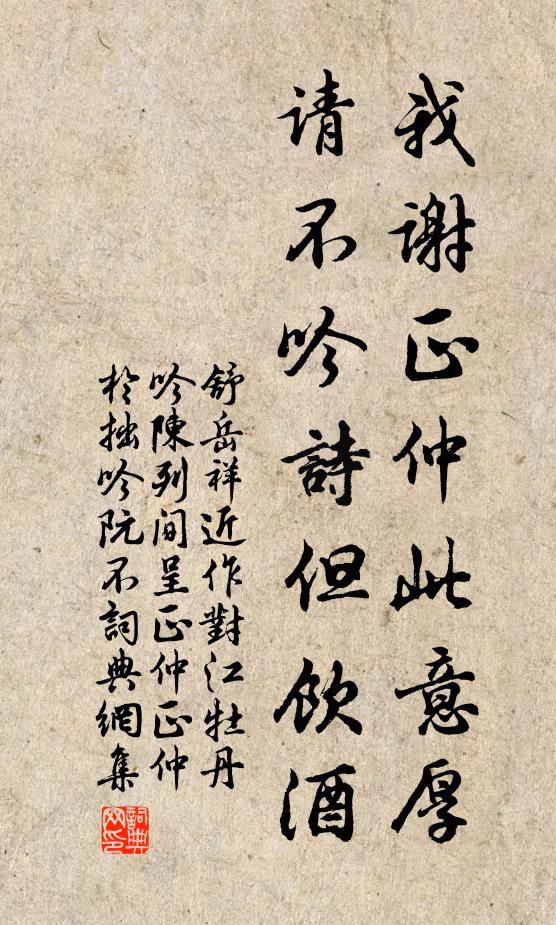 我谢正仲此意厚
请不吟詩但飲酒
舒岳祥近作對江牡丹
吟陳列间呈正仲正仲
於拙吟阮不詞典網集
詞典
网印